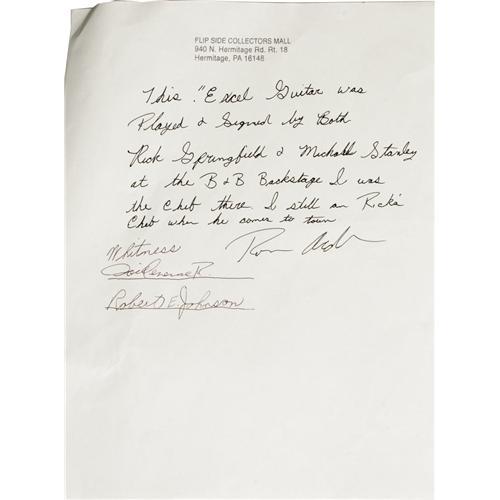 FLIP SIDE COLLECTORS MALL
940 N. Hermitage Rd. Rt. 18
Hermitage, PA 16148
This "Excel Guitar was
Played & Signed by Both
Rick Springfield & Michael Stanley
at the B & B Backstage I was
the Chef there. I still am Rick's
Chef when he comes to town
Whitness
Robert E. Johnson